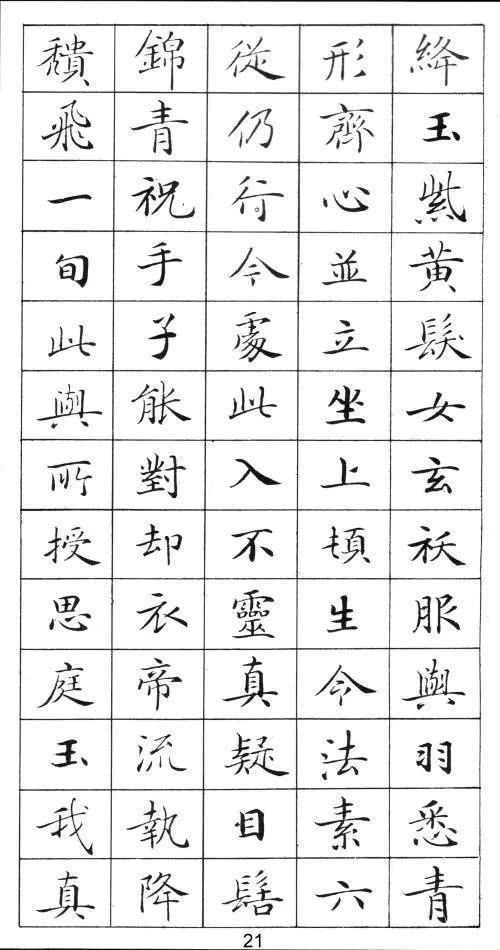 絳玉紫黃髮女玄袄服與羽悉青
形齊心並立坐上頓生令法素六
從仍行令處此入不靈真疑目髻
錦青祝手子能對却衣帝流執降
穨飛一旬此與所授思庭玉我真
21